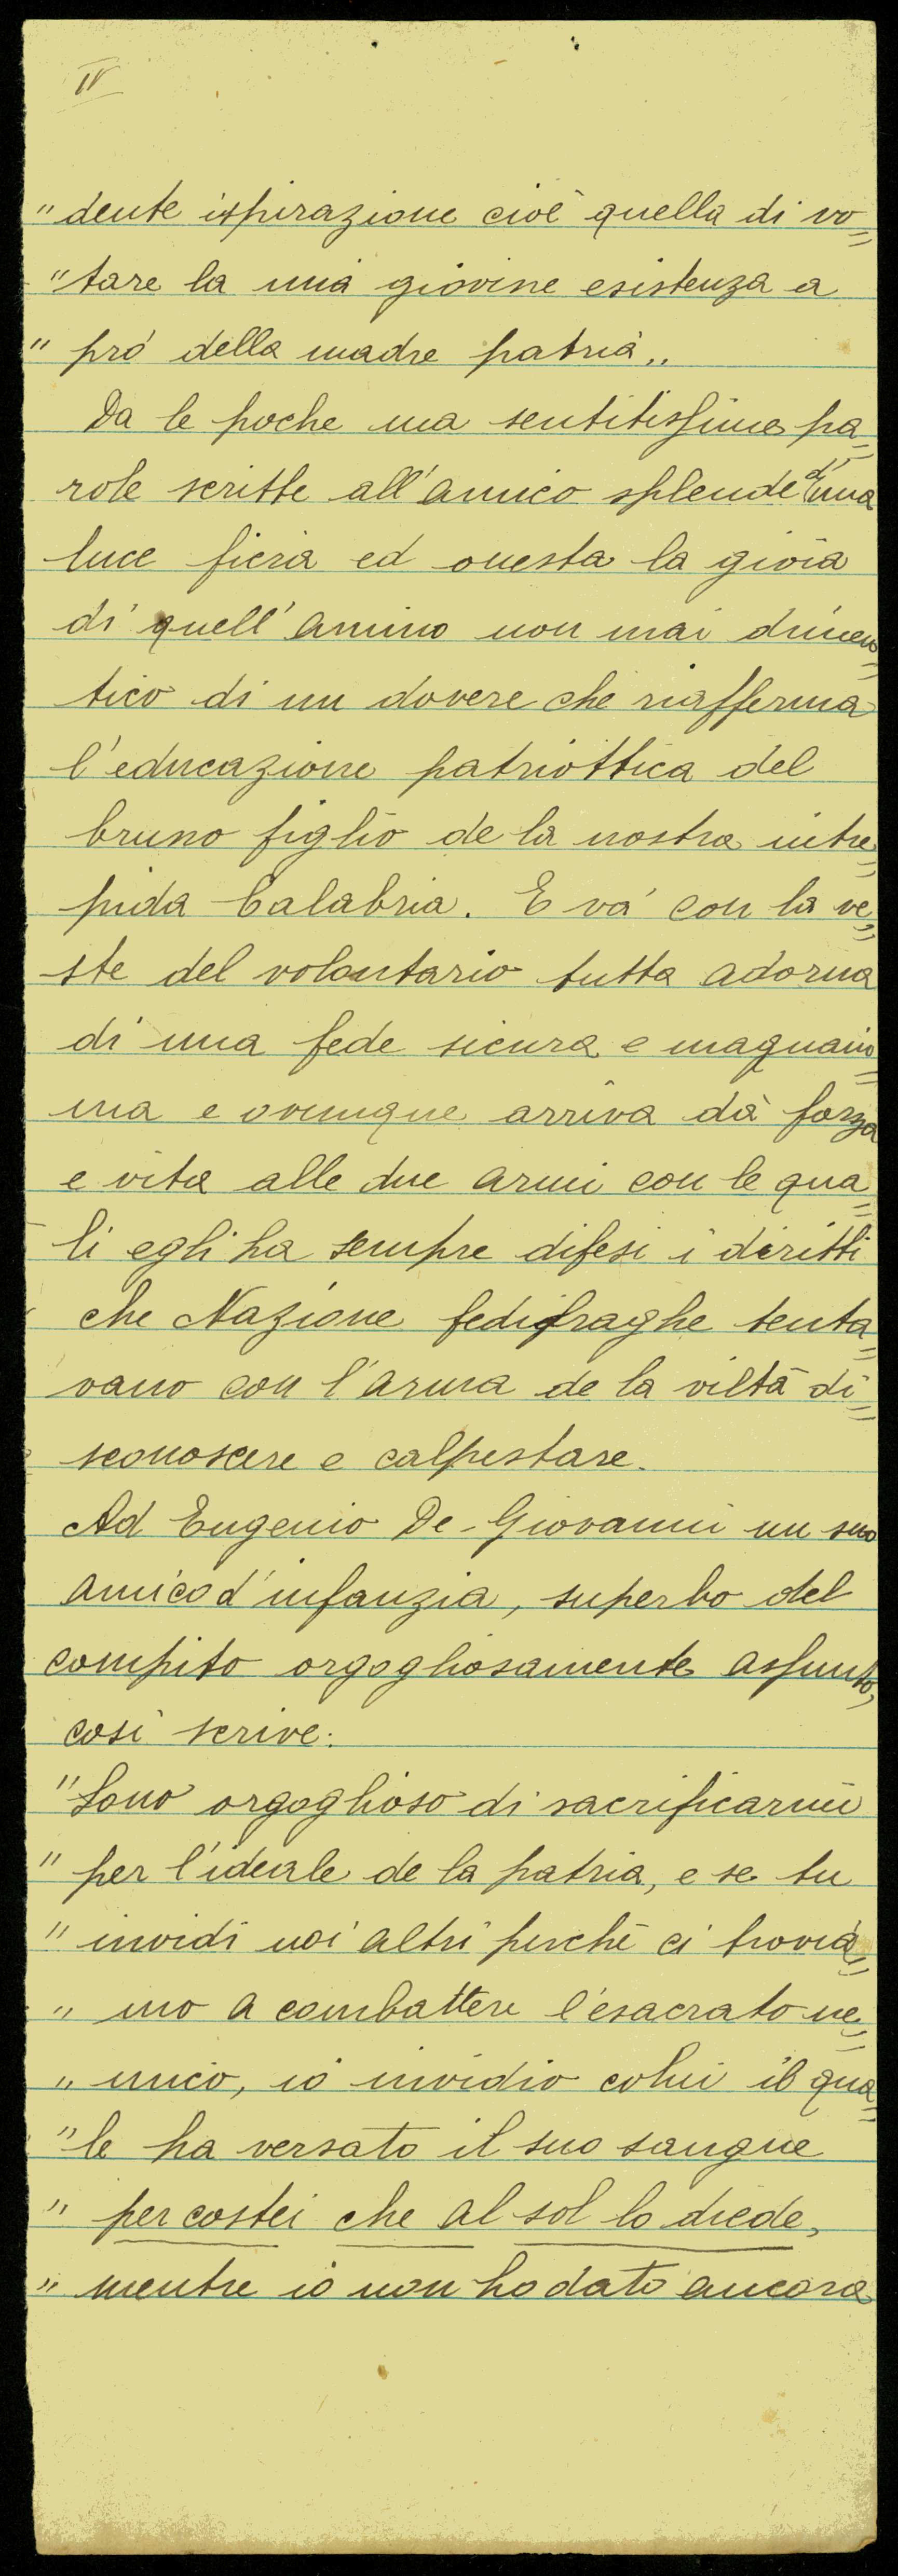 IV
" dente ispirazione cioè quella di vo=
" tare la mia giovine esistenza a
" pró della madre patria „
Da le poche ma sentitissime pa=
role scritte all'amico splende d'una
luce fiera ed onesta la gioia
di quell'animo non mai dimen=
tico di un dovere che riafferma
l'educazione patriottica del
bruno figlio de la nostra intre=
pida Calabria. E vá con la ve=
ste del volontario tutta adorna
di una fede sicura e magnani=
ma e ovunque arriva dà forza
e vita alle due armi con le qua=
li egli ha sempre difesi i diritti
che Nazione fedifraghe tenta=
vano con l'arma de la viltà di=
sconoscere e calpestare.
Ad Eugenio De-Giovanni un suo
amico d'infanzia, superbo del
compito orgogliosamente assunto,
così scrive:
" Sono orgoglioso di sacrificarmi
" per l'ideale de la patria, e se tu
" invidi noi altri perchè ci trovia=
" mo a combattere l'esacrato ne=
" mico, io invidio colui il qua=
" le ha versato il suo sangue
" per costei che al sol lo diede,
" mentre io non ho dato ancora